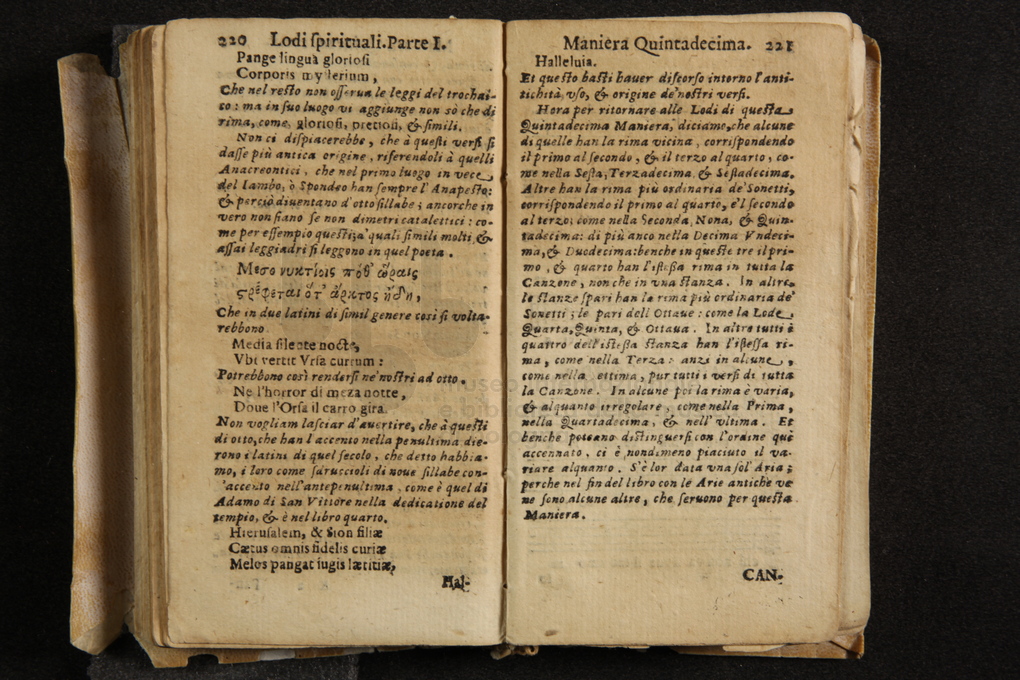 220 Lodi ſpirituali. Parte I.
Pange lingua glorioſi
Corporis myſterium,
Che nel reſto non oſſerua le leggi del trochai-
co: ma in ſuo luogo vi aggiunge non sò che di
rima, come, glorioſi, pretioſi, & ſimili.
Non ci diſpiacerebbe, che à queſti verſi ſi
daſſe più antica origine, riferendoli à quelli
Anacreontici, che nel primo luogo in vece
del Iambo, ò Spondeo han ſempre l'Anapeſto:
& perciò diuentano d'otto ſillabe; ancorche in
vero non ſiano ſe non dimetri catalettici: co-
me per eſſempio queſti; a' quali ſimili molti, &
aſſai leggiadri ſi leggono in quel poeta.
Μεσο νυκτίοις πόθ' ὥραις
στρέφεται ὅτ' ἄρκτος ἤδη,
Che in due latini di ſimil genere così ſi volta-
rebbono.
Media ſilente nocte,
Vbi vertit Vrſa currum:
Potrebbono così renderſi ne' noſtri ad otto.
Ne l'horror di meza notte,
Doue l'Orſa il carro gira.
Non vogliam laſciar d'auertire, che à queſti
di otto, che han l'accento nella penultima die-
rono i latini di quel ſecolo, che detto habbia-
mo, i loro come ſdruccioli di noue ſillabe con
l'accento nell'antepenultima, come è quel di
Adamo di San Vittore nella dedicatione del
tempio, & è nel libro quarto.
Hieruſalem, & Sion filiæ
Cætus omnis fidelis curiæ
Melos pangat iugis lætitiæ,
Hal-
Maniera Quintadecima. 221
Halleluia.
Et queſto baſti hauer diſcorſo intorno l'anti-
tichità, vſo, & origine de' noſtri verſi.
Hora per ritornare alle Lodi di queſta
Quintadecima Maniera, diciamo, che alcune
di quelle han la rima vicina, corriſpondendo
il primo al ſecondo, & il terzo al quarto, co-
me nella Seſta, Terzadecima, & Seſtadecima.
Altre han la rima più ordinaria de' Sonetti,
corriſpondendo il primo al quarto, e'l ſecondo
al terzo; come nella Seconda, Nona, & Quin-
tadecima: di più anco nella Decima Vndeci-
ma, & Duodecima: benche in queſte tre il pri-
mo, & quarto han l'iſteſſa rima in tutta la
Canzone, non che in vna ſtanza. In altre
le ſtanze ſpari han la rima più ordinaria de'
Sonetti; le pari dell Ottaue: come la Lode
Quarta, Quinta, & Ottaua. In altre tutti è
quattro dell'iſteſſa ſtanza han l'iſteſſa ri-
ma, come nella Terza: anzi in alcune,
come nella ettima, pur tutti i verſi di tutta
la Canzone. In alcune poi la rima è varia,
& alquanto irregolare, come nella Prima,
nella Quartadecima, & nell' vltima. Et
benche poteano diſtinguerſi con l'ordine quì
accennato, ci è nondimeno piaciuto il va-
riare alquanto. S'è lor data vna ſol' Aria;
perche nel fin del libro con le Arie antiche ve
ne ſono alcune altre, che ſeruono per queſta
Maniera.
CAN-